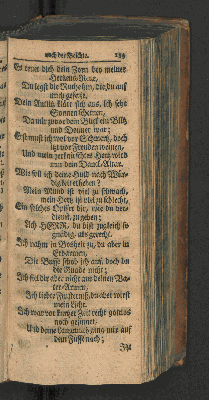 nach der Beichte. 189
Es reuet dich dein Zorn bey meiner
Herzens-Reue,
Du legst die Ruthe hin, die du auf
mich gefaßt,
Dein Antlitz klärt sich aus, ich sehe
Sonnenscheine,
Da mir zuvor dein Blick ein Blitz
und Donner war;
Erst must ich vor Schmerz, doch
itzt vor Freuden weinen,
Und mein zerknirschtes Herz wird
nun dein Danck-Altar.
Wie soll ich deine Huld nach Würdig
keit erheben?
Mein Mund ist viel zu schwach,
mein Herz ist viel zu schlecht,
Ein solches Opfer dir, wie du verdienst,
zu geben;
Ach HERR, du bist zugleich so
gnädig, als gerecht.
Ich nahm in Bosheit zu, du aber in
Erbarmen,
Die Busse schob ich auf, doch du
die Gnade nicht;
Ich fiel dir aber nicht aus deinen Vater-Armen,
Ich liebte Finsterniß, du aber wirst
mein Licht.
Ich war vor kurzer Zeit recht gottlos
noch gesinnet,
Und deine Langmuth ging mir auf
dem Fusse nach;